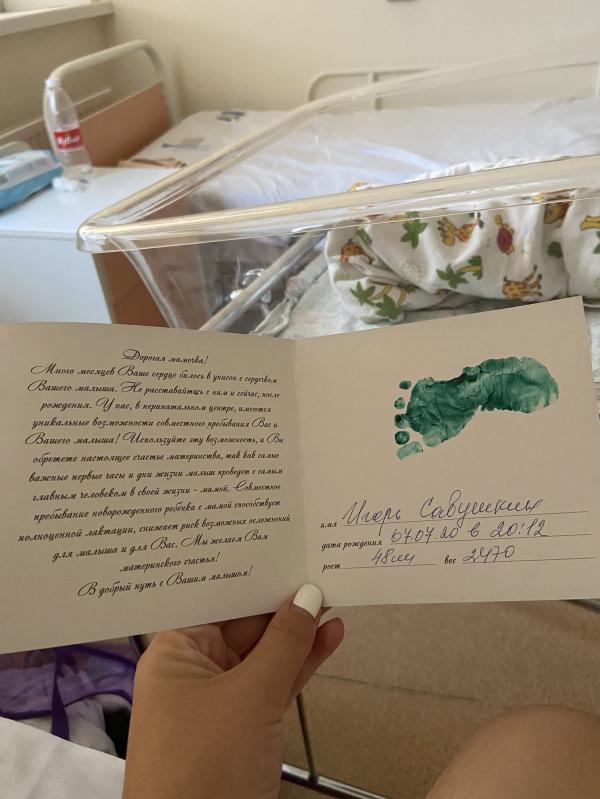 Дорогая мамочка!
Много месяцев Ваше сердце билось в унисон с сердечком
Вашего малыша. Не расставайтесь с ним и сейчас, после
рождения. У нас, в перинатальном центре, имеются
уникальные возможности совместного пребывания Вас и
Вашего малыша! Используйте эту возможность, и Вы
обретете настоящее счастье материнства, так как самые
важные первые часы и дни жизни малыш проведет с самым
главным человеком в своей жизни - мамой. Совместное
пребывание новорожденного ребенка с мамой способствует
полноценной лактации, снижает риск возможных осложнений
для малыша и для Вас. Мы желаем Вам
материнского счастья!
В добрый путь с Вашим малышом!
имя Игорь Савушкин
дата рождения 07.07.20 в 20:12
рост 48см вес 2470